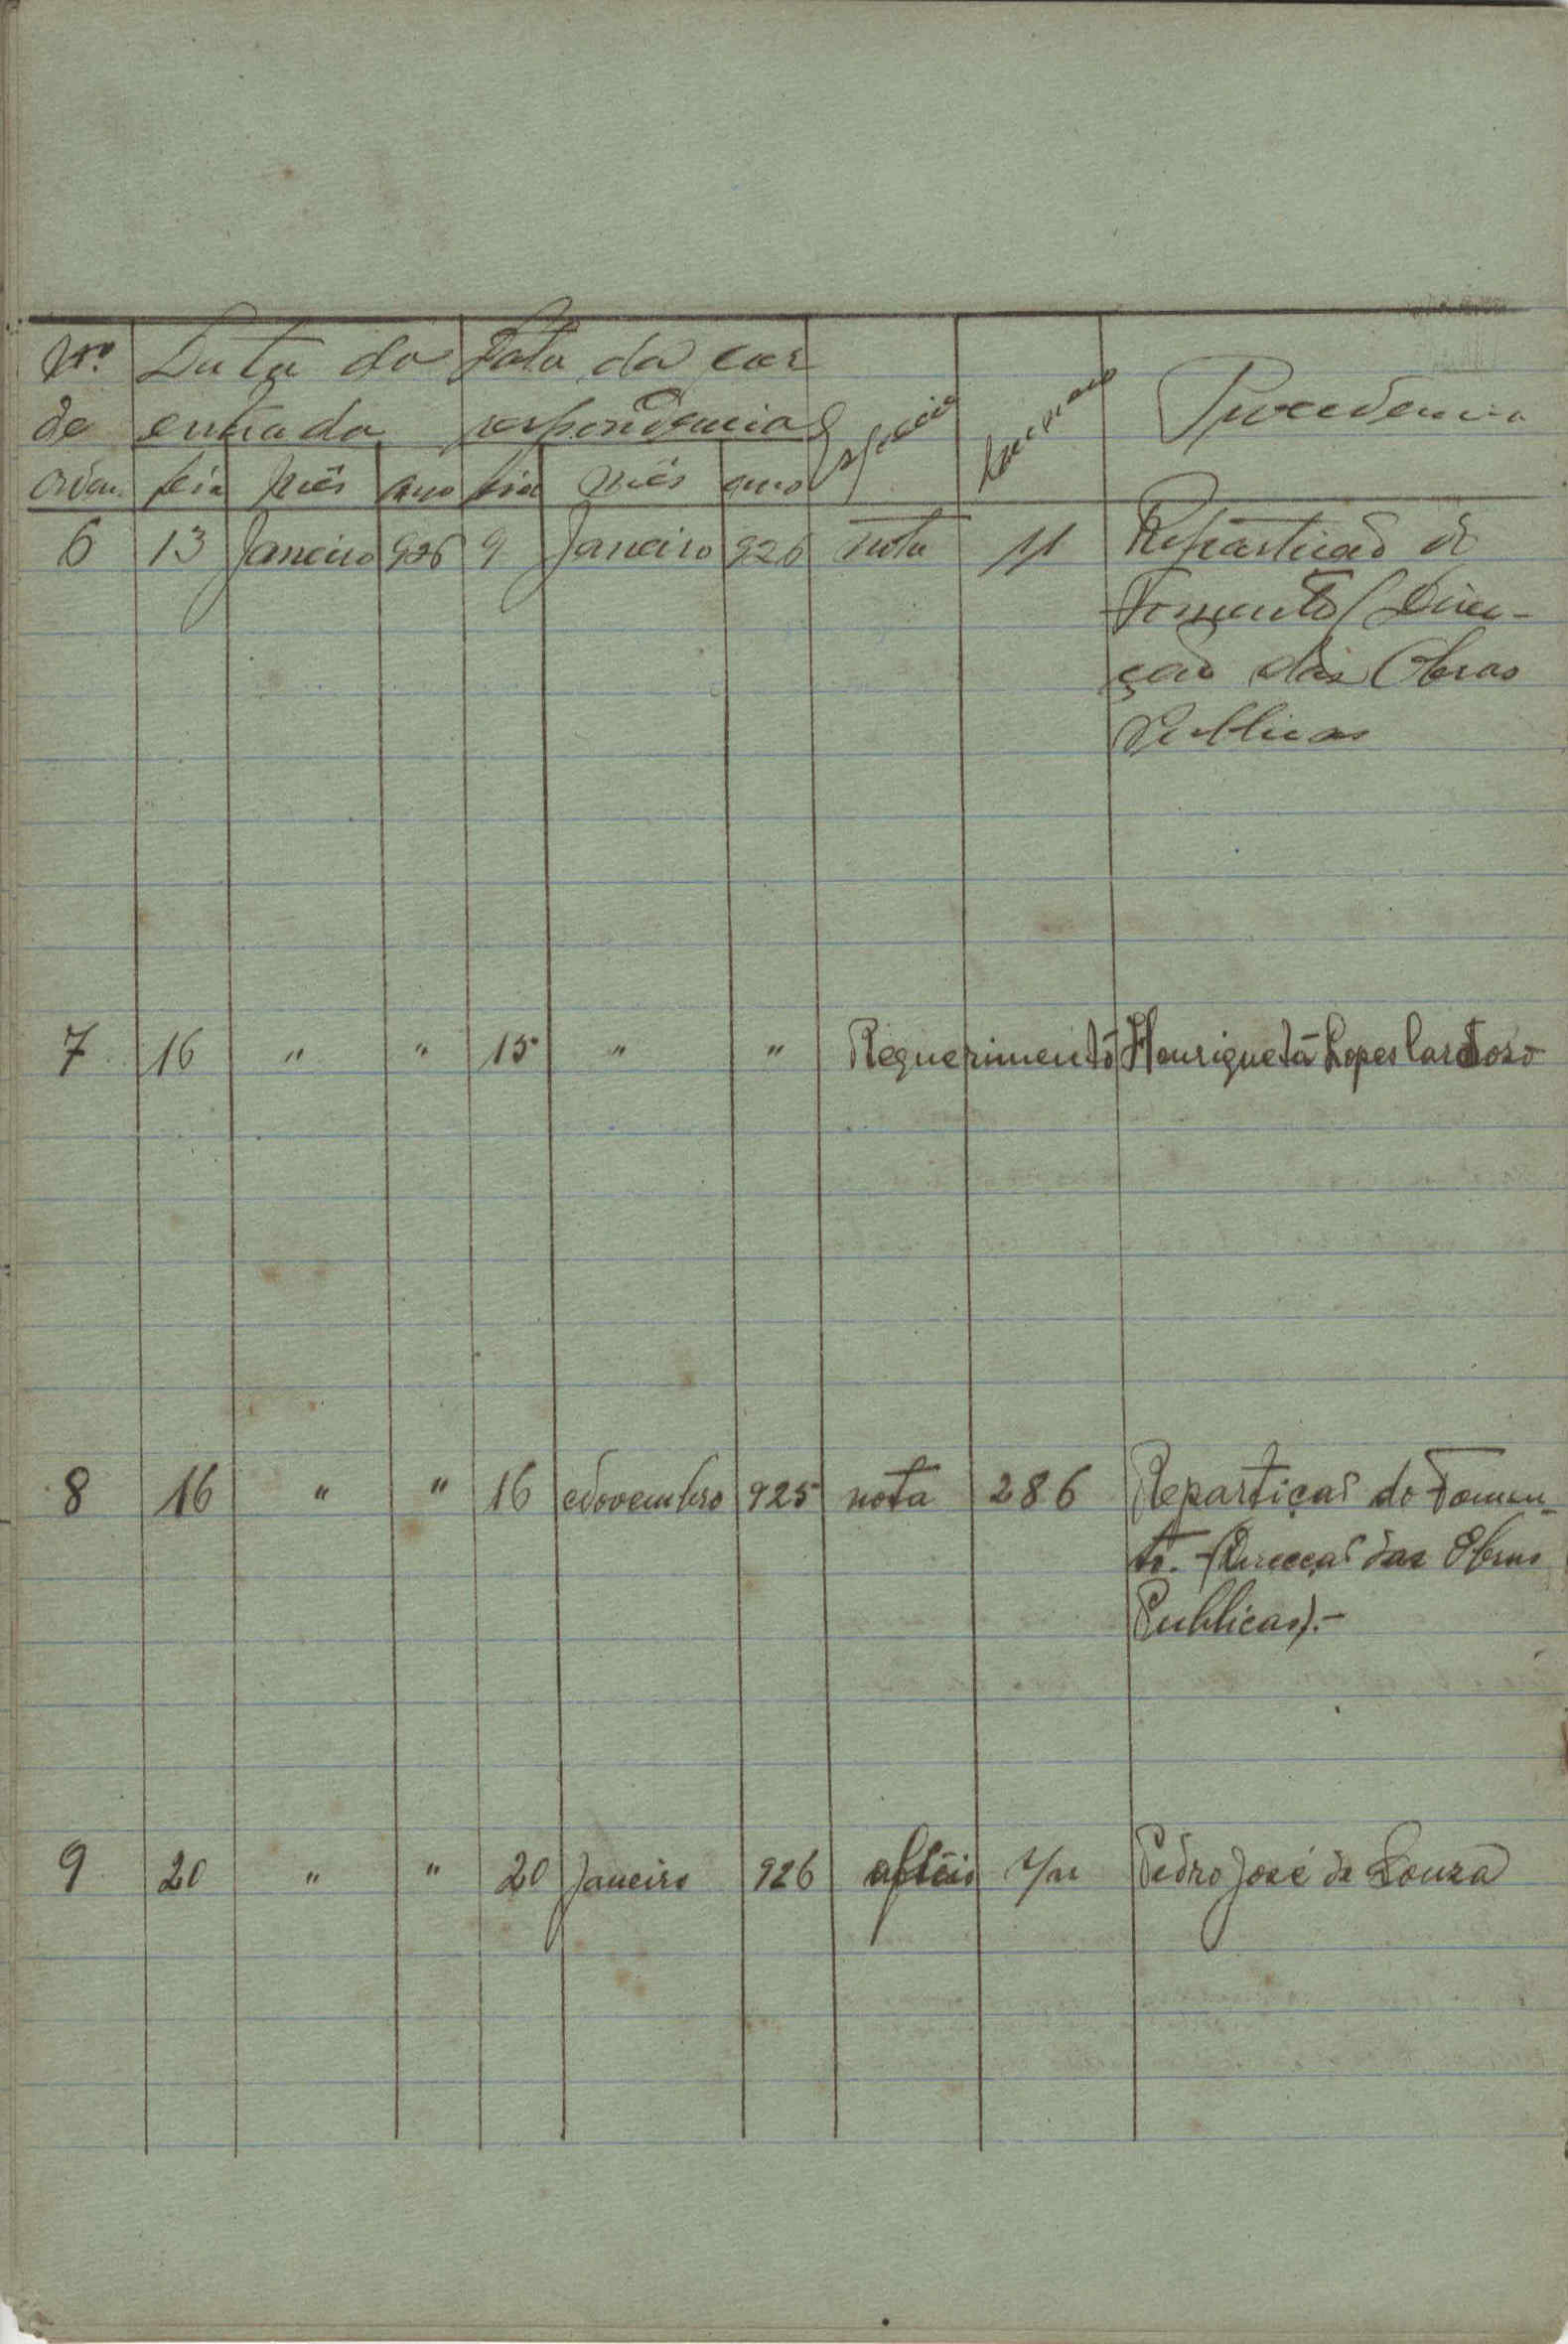 Nº Data da Data da cor
de entrada respondencia Especie Numero Procedencia
ordem dia mês ano dia mês ano
6 13 Janeiro 926 9 Janeiro 926 nota 11 Repartição do
Fomento (Direc-
ção das Obras
Publicas
7 16 " " 15 " " Requerimento Henriqueta Lopes Cardoso
8 16 " " 16 Novembro 925 nota 286 Repartição do Fomen-
to. - (Direcção das Obras
Publicas). -
9 20 " " 20 Janeiro 926 oficio s/n Pedro José de Souza